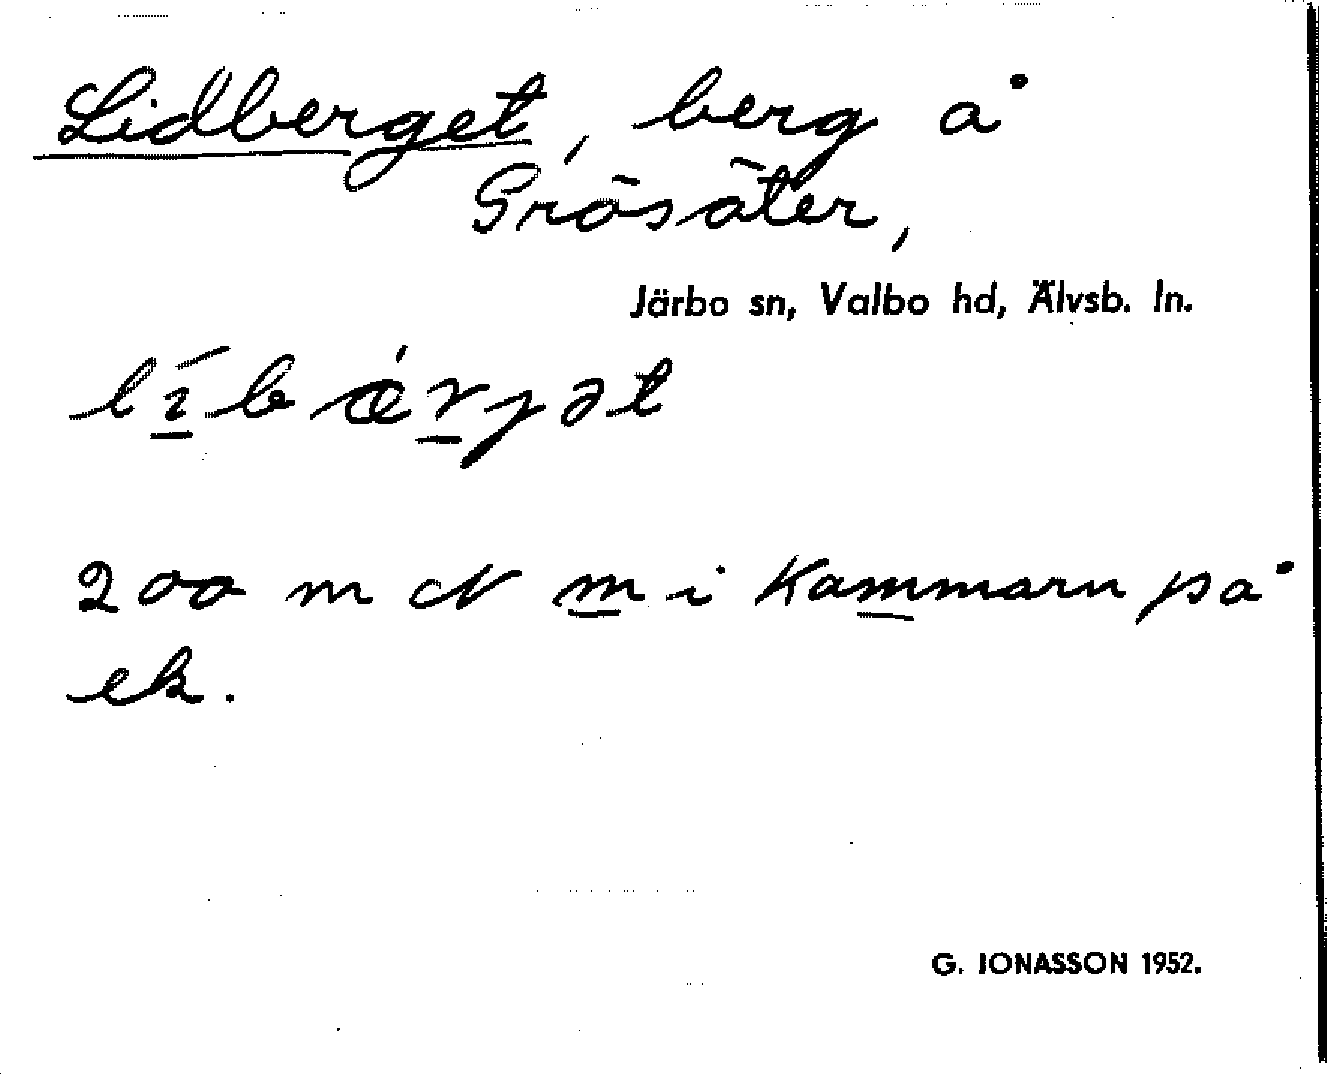 Lidberget, berg å
Grösäter,
Järbo sn, Valbo hd, Älvsb. ln.
lìbǽrjət
200 m N m i Kammarn på
ek.
G. IONASSON 1952.